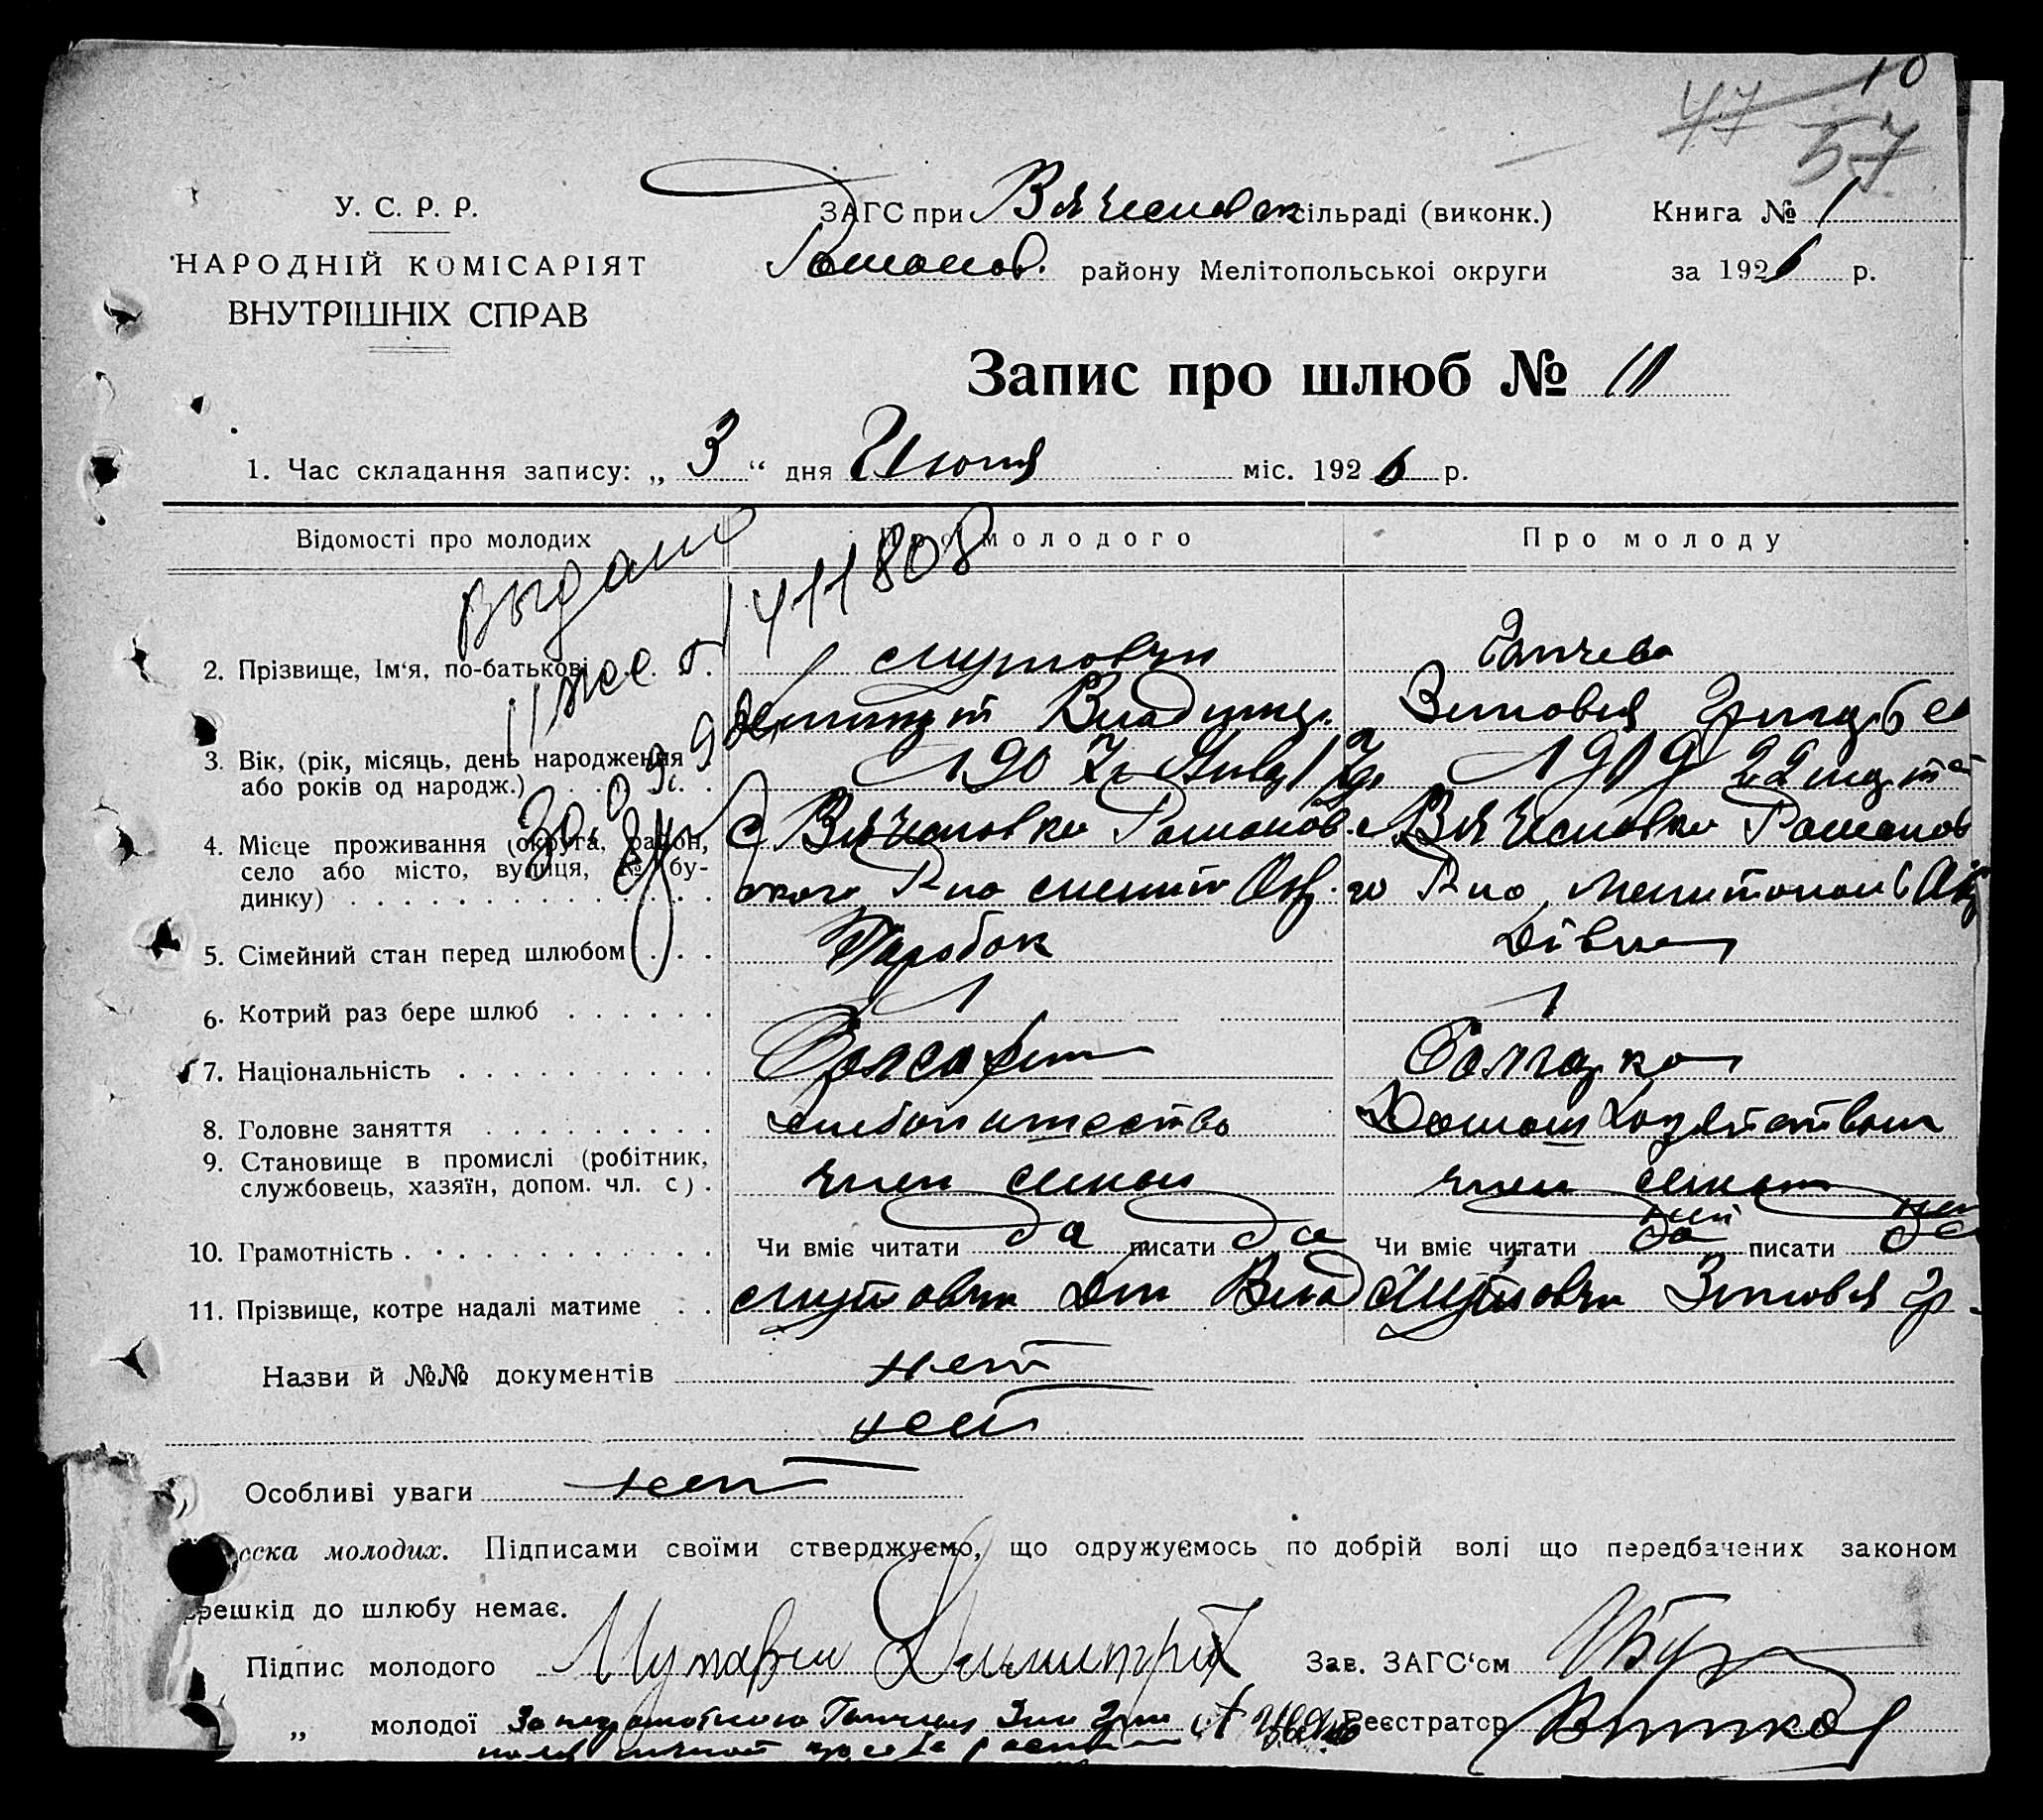 10
47
57
У. С. Р. Р.
НАРОДНІЙ КОМІСАРІЯТ
ВНУТРІШНІХ СПРАВ
ЗАГС при Вячеславск сільраді (виконк.)
Романов. району Мелітопольськоі округи
Книга № 1
за 1926 р.
Запис про шлюб № 11
1. Час складання запису: „ 3 “ дня Июня міс. 1926 р.
Відомості про молодих
Про молодого
Про молоду
выдано
411808
2. Прізвище, Ім‘я, по-батькові
Мутовчи
Ганчева
Димитрий Владимир.
Зиновия
3. Вік, (рік, місяць, день народження або років од народж.)
190
1909 22 марта
4. Місце проживання (округа, район, село або місто, вулиця, № будинку)
с Вячеславка Романов
с Вячеславка Романов
ского Р на Мелит Окр.
го Р на Мелитопол Окр
5. Сімейний стан перед шлюбом
Паробок
Дівка
6. Котрий раз бере шлюб
1
1
7. Національність
Болгарин
Болгарка
8. Головне заняття
хлебопашество
Домаш хозяйством
9. Становище в промислі (робітник, службовець, хазяїн, допом. чл. с).
член семьи
член семьи
10. Грамотність
Чи вміє читати да писати да
Чи вміє читати да нет писати да нет
11. Прізвище, котре надалі матиме
Мутовчи Дм Влад
Мутовчи Зиновия Гр
Назви й №№ документів нет
нет
Особливі уваги нет
еска молодих. Підписами своїми стверджуємо, що одружуємось по добрій волі що передбачених законом
решкід до шлюбу немає.
Підпис молодого Мутавчи Димитрий
Зав. ЗАГС‘ом
„ молодої За неграмотного Ганчева Зин
Реєстратор